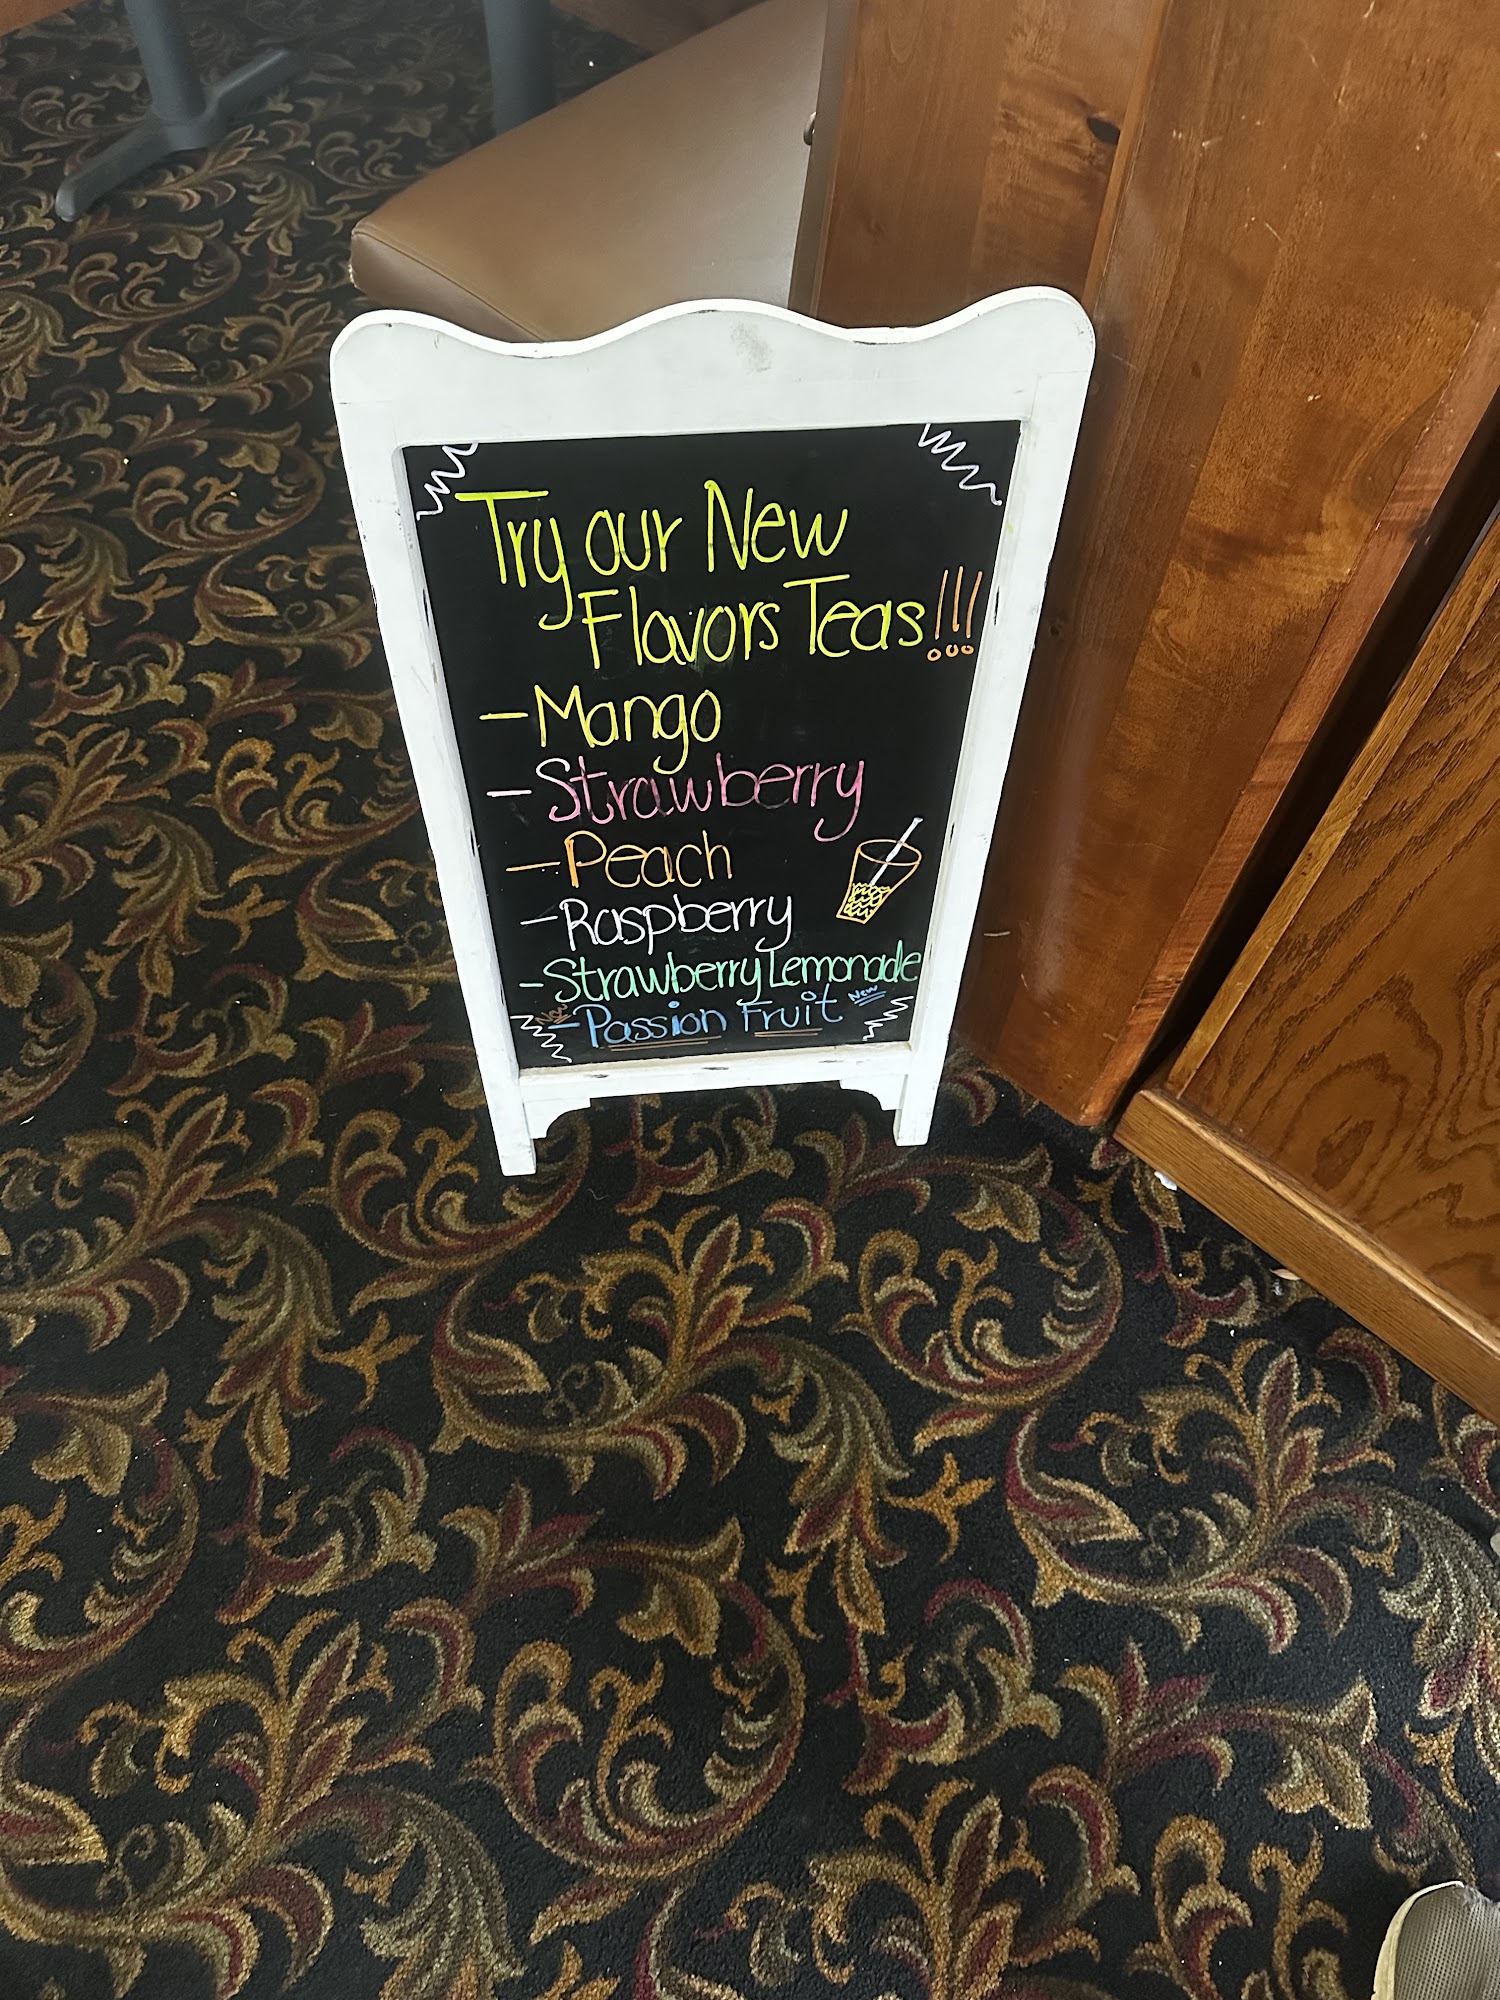 Try our New
Flavors Teas!!!
- Mango
- Strawberry
- Peach
- Raspberry
- Strawberry Lemonade
New - Passion Fruit New